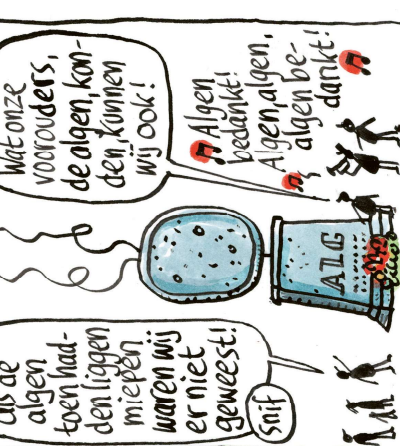 als de
algen
toen had-
den liggen
miepen
waren wij
er niet
geweest!
Snif
ALG
Wat onze
voorouders,
de algen, kon-
den, kunnen
wij ook!
Algen
bedankt!
Algen, algen,
algen be-
dankt!